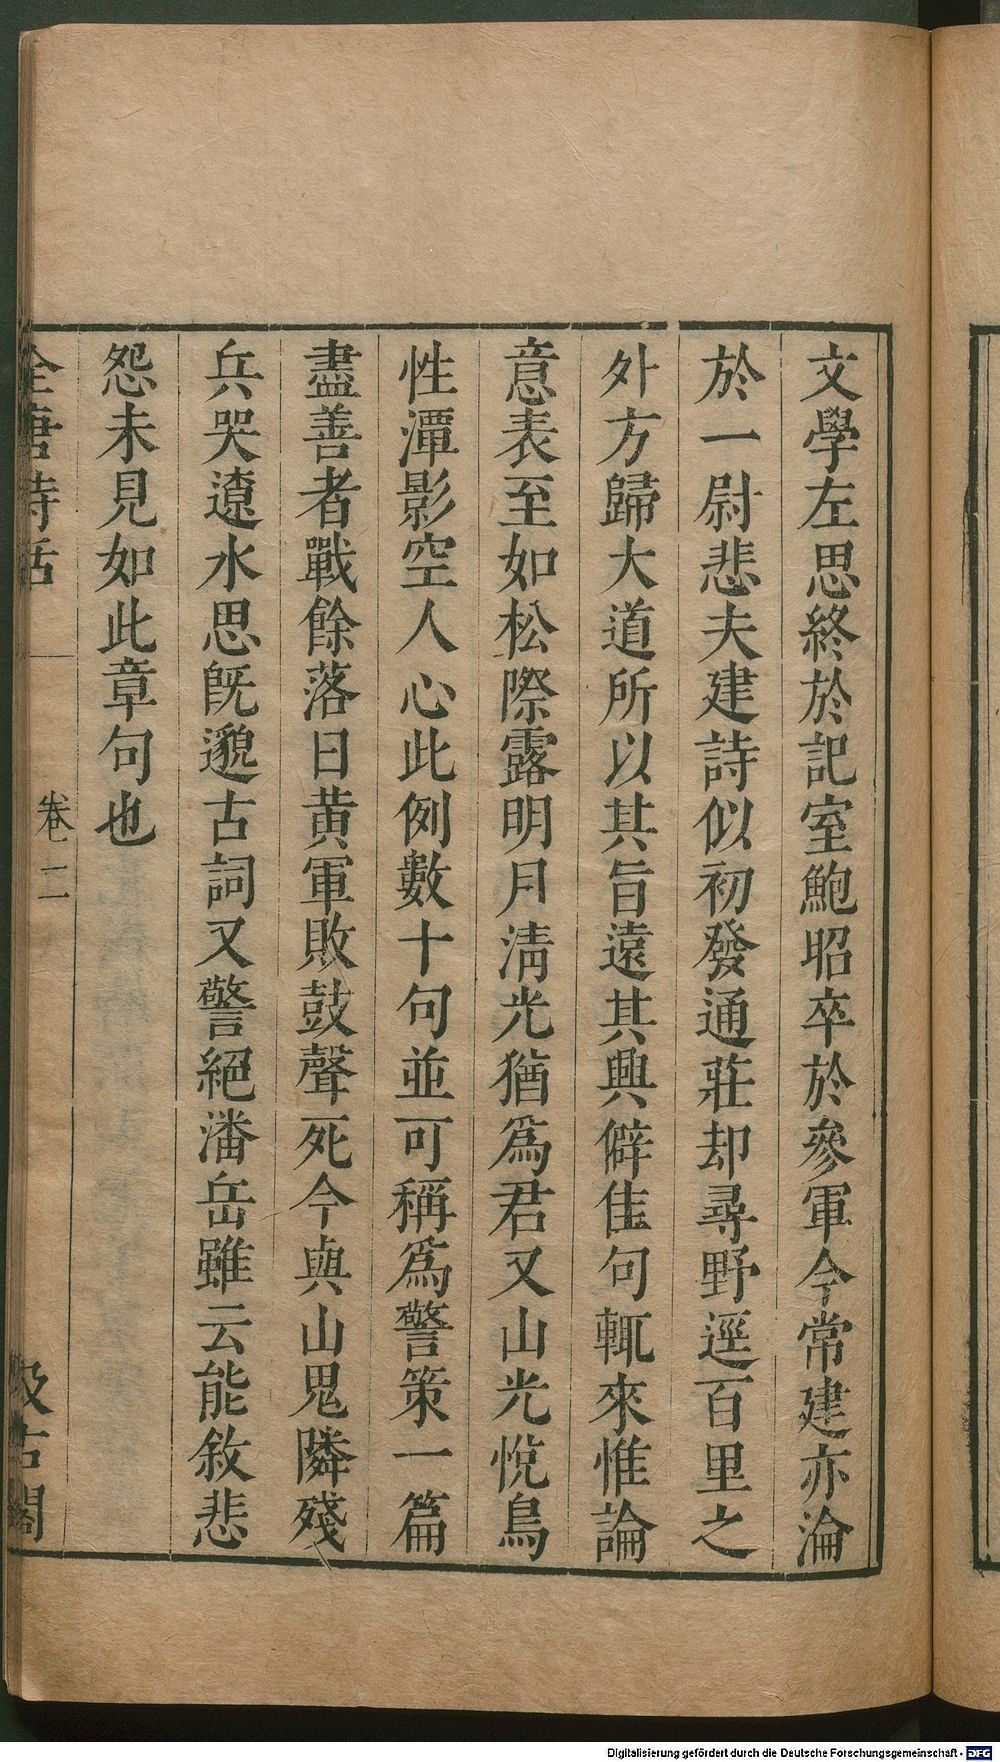 文學左思終於記室鮑昭卒於參軍今常建亦淪
於一尉悲夫建詩似初發通莊却尋野逕百里之
外方歸大道所以其旨遠其興僻佳句輒來惟論
意表至如松際露明月淸光猶爲君又山光悅鳥
性潭影空人心此例數十句並可稱爲警策一篇
盡善者戰餘落日黃軍敗鼓聲死今與山鬼隣殘
兵哭遼水思旣邈古詞又警絕潘岳雖云能敘悲
怨未見如此章句也
全唐詩話
卷二
汲古閣
Digitalisierung gefördert durch die Deutsche Forschungsgemeinschaft - DFG